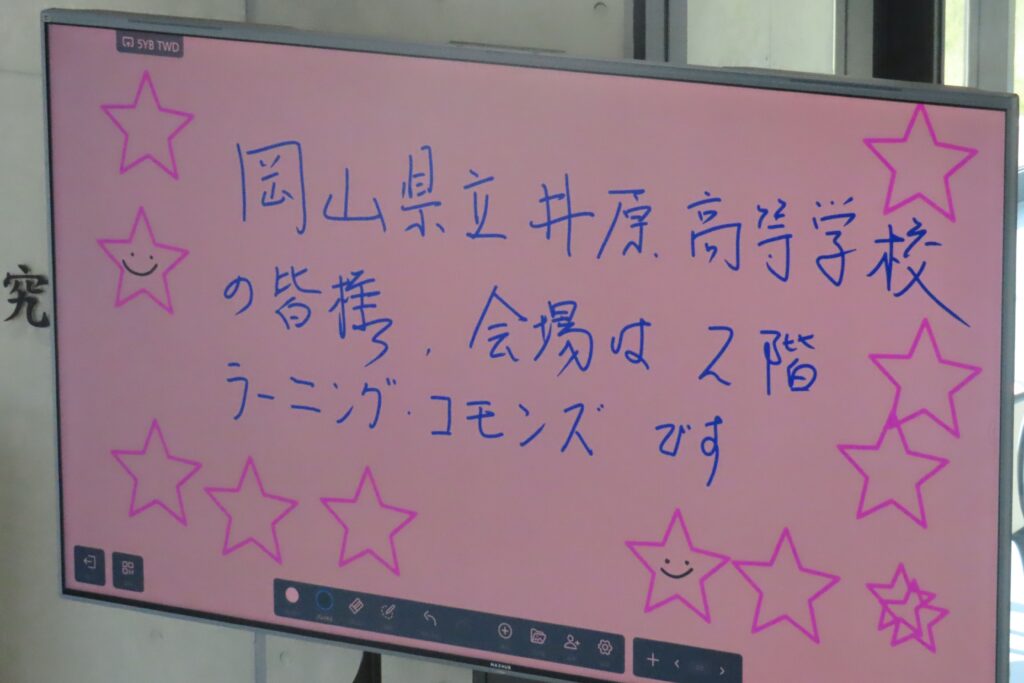 5YB TWD
岡山県立井原高等学校
の皆様、会場は2階
ラーニング・コモンズです
究
MAXHUB